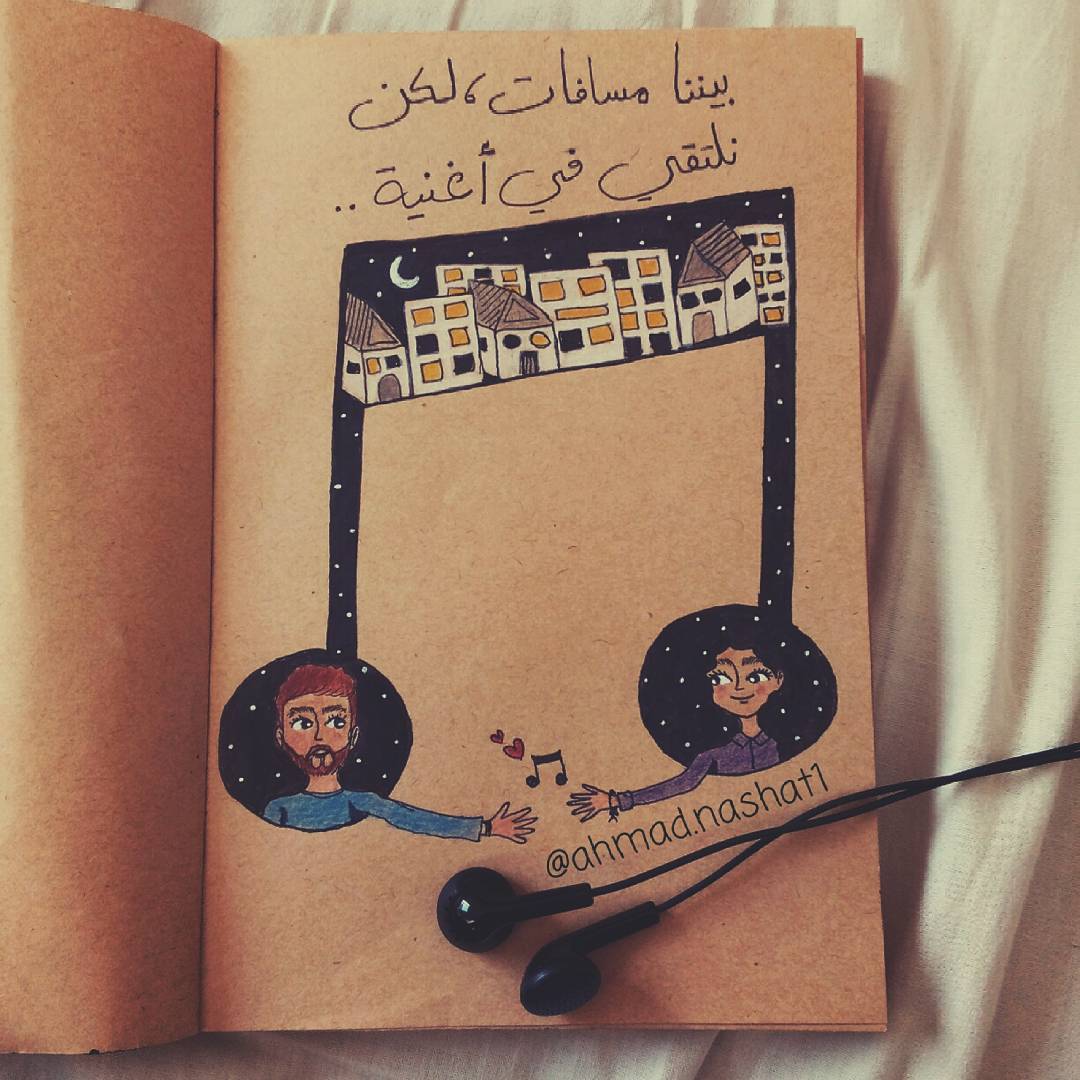 بيننا مسافات، لكن
نلتقي في أغنية ..
@ahmad.nashat1